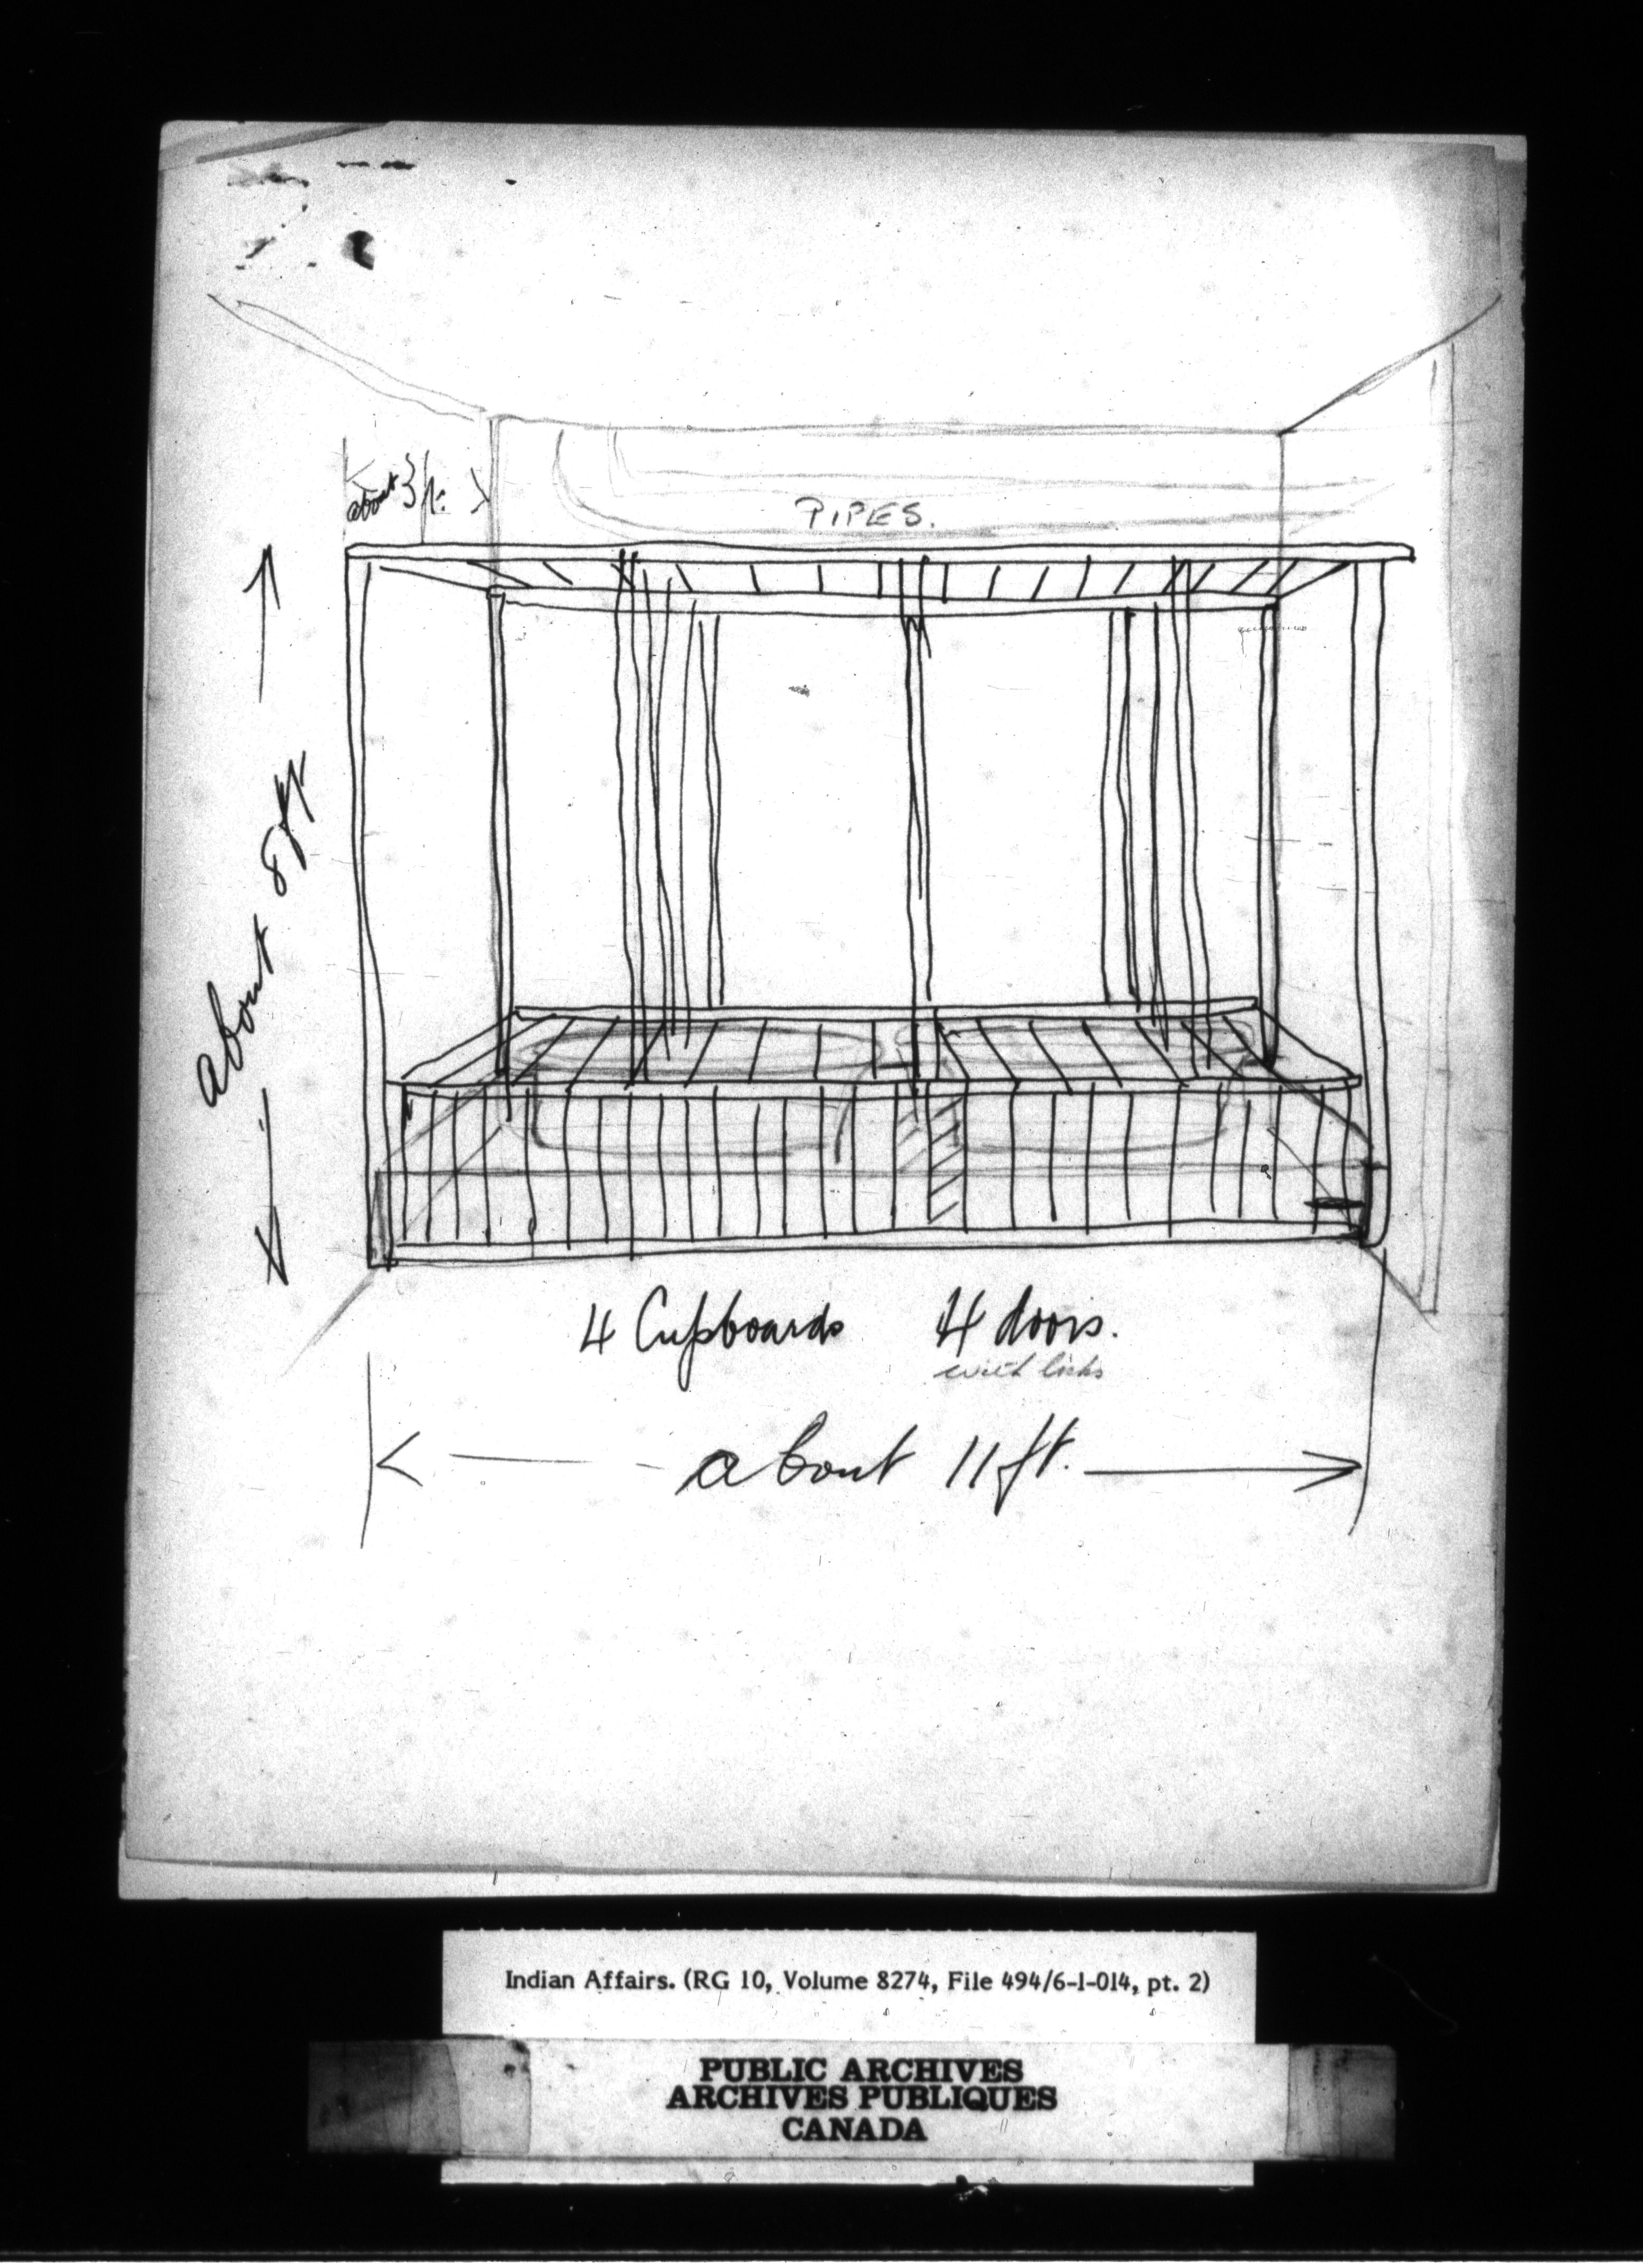 about 3 ft.
PIPES.
about 8 ft
4 Cupboards 4 doors.
with locks
about 11 ft.
Indian Affairs. (RG 10, Volume 8274, File 494/6-1-014, pt. 2)
PUBLIC ARCHIVES
ARCHIVES PUBLIQUES
CANADA